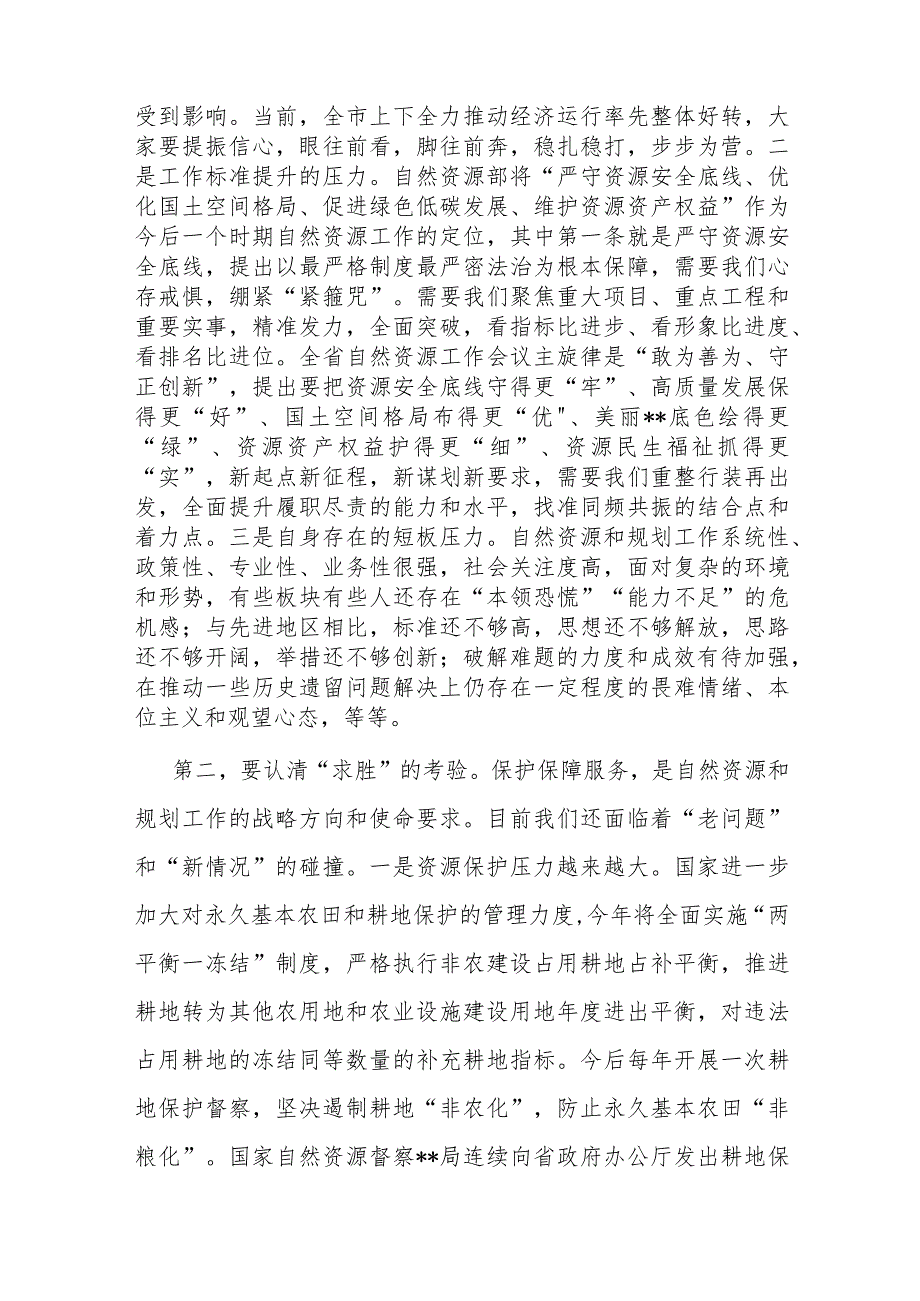 受到影响。当前，全市上下全力推动经济运行率先整体好转，大
家要提振信心，眼往前看，脚往前奔，稳扎稳打，步步为营。二
是工作标准提升的压力。自然资源部将“严守资源安全底线、优
化国土空间格局、促进绿色低碳发展、维护资源资产权益”作为
今后一个时期自然资源工作的定位，其中第一条就是严守资源安
全底线，提出以最严格制度最严密法治为根本保障，需要我们心
存戒惧，绷紧“紧箍咒”。需要我们聚焦重大项目、重点工程和
重要实事，精准发力，全面突破，看指标比进步、看形象比进度、
看排名比进位。全省自然资源工作会议主旋律是“敢为善为、守
正创新”，提出要把资源安全底线守得更“牢”、高质量发展保
得更“好”、国土空间格局布得更“优"、美丽**底色绘得更
“绿”、资源资产权益护得更“细”、资源民生福祉抓得更
“实”，新起点新征程，新谋划新要求，需要我们重整行装再出
发，全面提升履职尽责的能力和水平，找准同频共振的结合点和
着力点。三是自身存在的短板压力。自然资源和规划工作系统性、
政策性、专业性、业务性很强，社会关注度高，面对复杂的环境
和形势，有些板块有些人还存在“本领恐慌”“能力不足”的危
机感；与先进地区相比，标准还不够高，思想还不够解放，思路
还不够开阔，举措还不够创新；破解难题的力度和成效有待加强，
在推动一些历史遗留问题解决上仍存在一定程度的畏难情绪、本
位主义和观望心态，等等。
第二，要认清“求胜”的考验。保护保障服务，是自然资源和
规划工作的战略方向和使命要求。目前我们还面临着“老问题”
和“新情况”的碰撞。一是资源保护压力越来越大。国家进一步
加大对永久基本农田和耕地保护的管理力度,今年将全面实施“两
平衡一冻结”制度，严格执行非农建设占用耕地占补平衡，推进
耕地转为其他农用地和农业设施建设用地年度进出平衡，对违法
占用耕地的冻结同等数量的补充耕地指标。今后每年开展一次耕
地保护督察，坚决遏制耕地“非农化”，防止永久基本农田“非
粮化”。国家自然资源督察**局连续向省政府办公厅发出耕地保